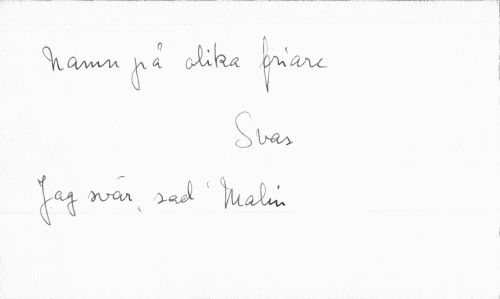 Namn på olika friare
Svas
Jag svär, sad' Malin